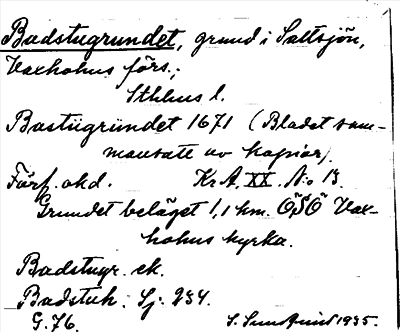 Badstugrundet, grund i Saltsjön,
Vaxholms förs.;
Sthlms l.
Bastugrundet 1671 (Bladet sam-
mansatt av kopior).
Förf. okd. Kr A XX. N:o 13.
Grundet beläget 1,1 km. ÖSÖ Vax-
holms kyrka.
Badstugr. ek.
Badstuh. Sj. 234.
G. 76. S. Sundquist 1935.